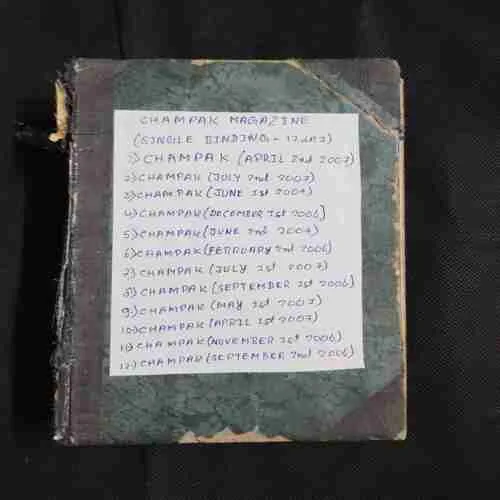 CHAMPAK MAGAZINE
(SINGLE BINDING -
1) CHAMPAK (APRIL 2nd 2007)
2) CHAMPAK (JULY 2nd 2007)
3) CHAMPAK (JUNE 1st 2007)
4) CHAMPAK (DECEMBER 1st 2006]
5) CHAMPAK (JUNE 2nd 2007)
6) CHAMPAK (FEBRUARY 2nd 2006)
7) CHAMPAK (JULY 1st 2007)
8) CHAMPAK (SEPTEMBER 1st 2006)
9) CHAMPAK (MAY 1st 2007)
10) CHAMPAK (APRIL 1st 2007)
11) CHAMPAK (NOVEMBER 1st 2006)
12) CHAMPAK (SEPTEMBER 2nd 2006)